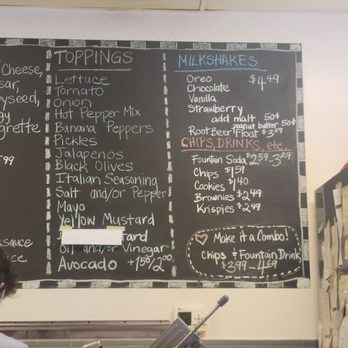 Cheese,
sauce
TOPPINGS
Lettuce
Tomato
Onion
Hot Pepper Mix
Banana Peppers
Pickles
Jalapenos
Black Olives
Italian Seasoning
Salt and/or Pepper
Mayo
Yellow Mustard
Oil and/or Vinegar
Avocado +1⁵⁰/2⁰⁰
MILKSHAKES
Oreo $4.49
Chocolate
Vanilla
Strawberry
add malt 50¢
peanut butter 50¢
Root Beer Float $3.29
CHIPS, DRINKS, etc.
Fountain Soda $2.59-3.29
Chips $1.59
Cookies $1.40
Brownies $2.49
Krispies $2.49
Make it a Combo!
Chips & Fountain Drink
$3.99-4.69